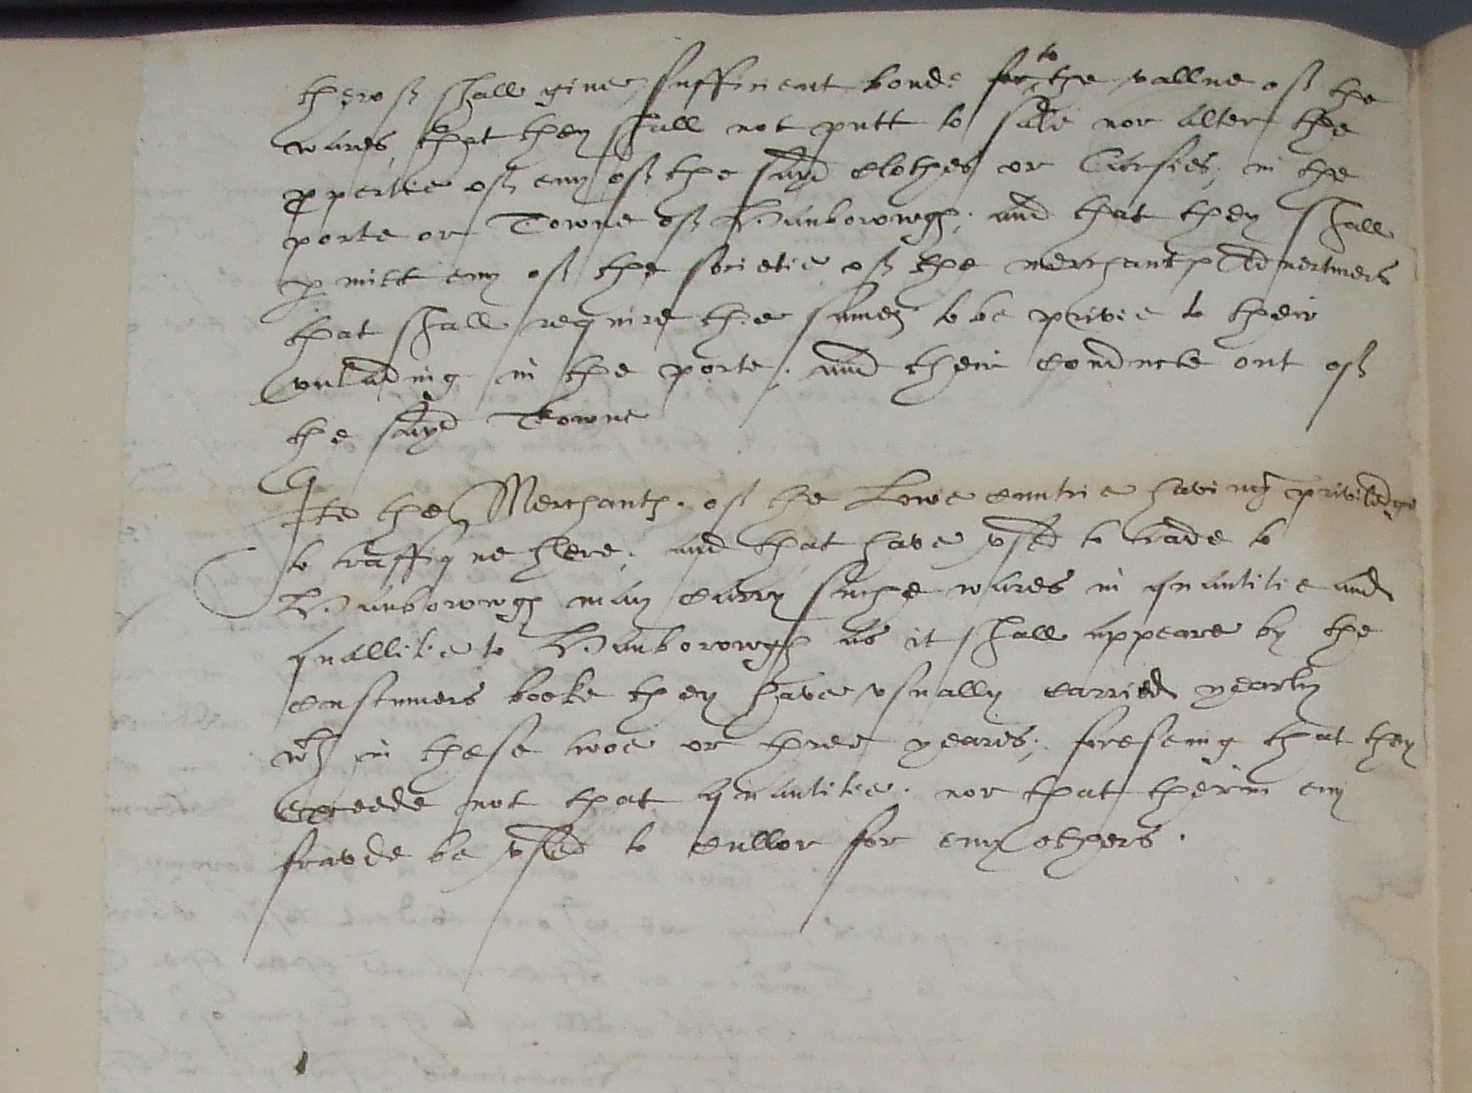 therof shall give sufficient bonde for to the vallue of the
wares, that they shall not putt to sale nor alter the
ppertie of eny of the sayd clothes or Carsies, in the
porte or Towne of Hamborowgh, and that they shall
pmitt eny of the societie of the merchants Adventurers
that shall require the same to be privie to their
vnlading in the porte, and their conducte out of
the sayd Towne
Ite the Merchants of the Lowe cuntrie having priviledge
to traffique here, and that have vsed to trade to
Hamborowgh may carry suche wares in quantitie and
quallitie to Hamborowgh as it shall appeare by the
custumers booke they have vsually carried yearly
wth in these twoe or three yeares, foreseing that they
exceede not that quantitie, nor that therin eny
fravde be vsed to cullor for eny others.